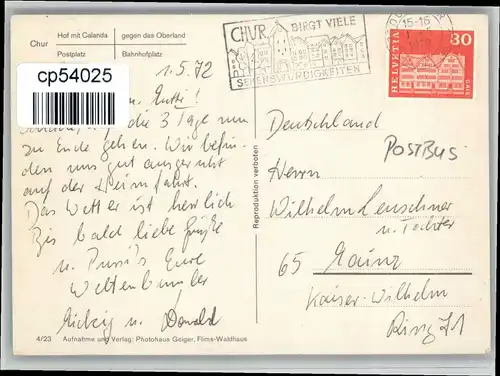 Hof mit Calanda
gegen das Oberland
Chur
Postplatz
Bahnhofplatz
cp54025
CHUR BIRGT VIELE
SEHENSWÜRDIGKEITEN
15-16
HELVETIA
30
GAIS
1.5.72
die 3 Tage nun
zu Ende gehen. Wir befin-
den uns gut ausgeruht
auf der Heimfahrt.
Das Wetter ist herrlich
Bis bald liebe Grüße
u. Pussi's Eure
Weltenbummler
u. Donald
Reproduktion verboten
Deutschland
POSTBUS
Herrn
Wilhelm Leuschner
u. Tochter
65 Mainz
Kaiser-Wilhelm
Ring 71
4/23 Aufnahme und Verlag: Photohaus Geiger, Flims-Waldhaus